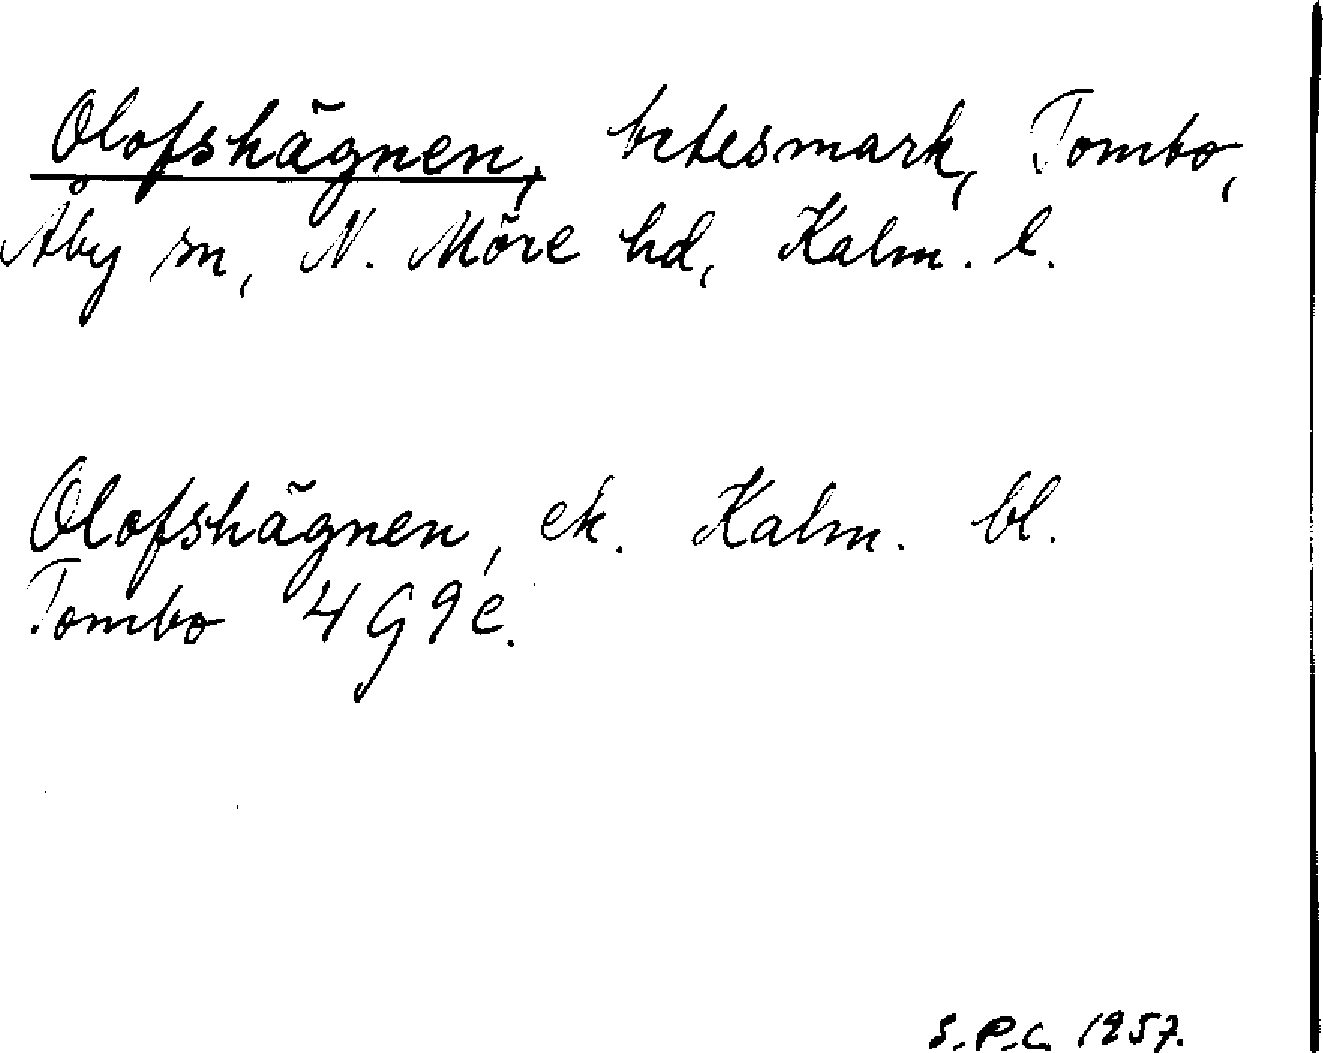 Olofshägnen, betesmark, Tombo,
Åby sn, N. Möre hd, Kalm. l.
Olofshägnen, ek. Kalm. bl.
Tombo 4 G 9 e.
S.P.C. 1957.